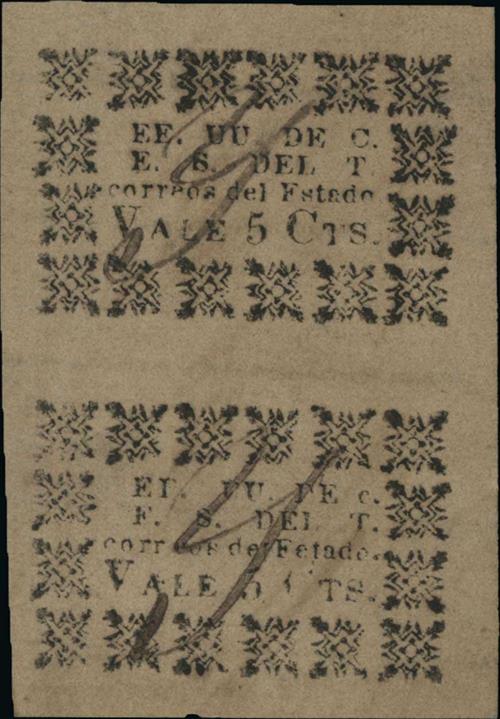 EE. UU. DE C.
E. S. DEL T.
correos del Estado
VALE 5 CTS.
EE. UU. DE c.
E. S. DEL T.
correos del Estado.
VALE 5 CTS.